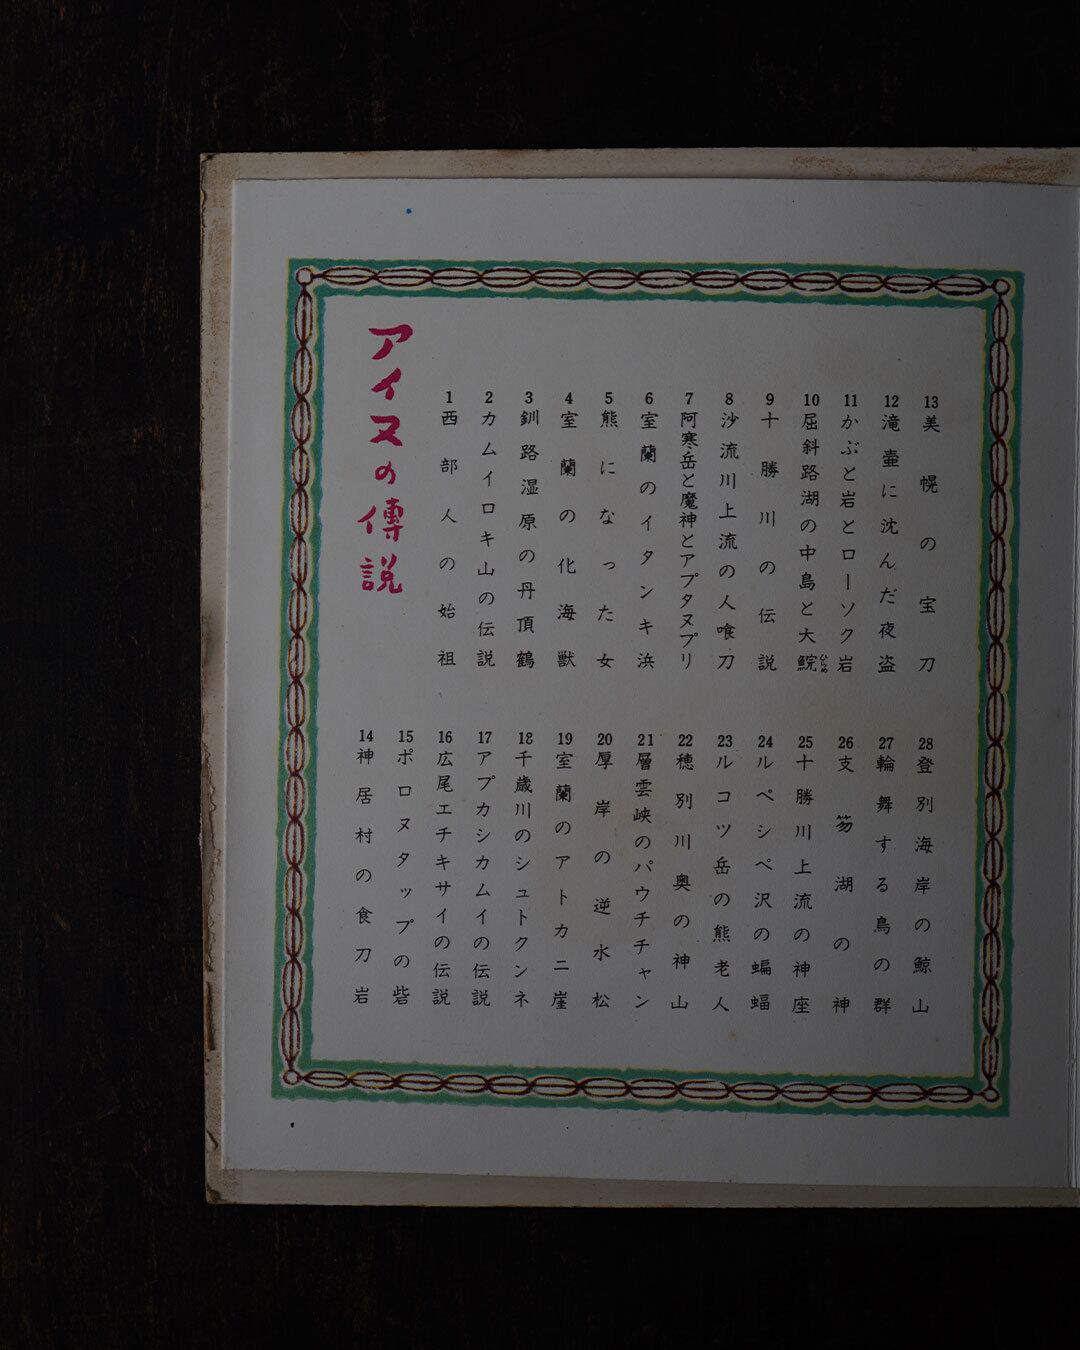 アイヌの傳説
1 西部人の始祖
2 カムイロキ山の伝説
3 釧路湿原の丹頂鶴
4 室蘭の化海獣
5 熊になった女
6 室蘭のイタンキ浜
7 阿寒岳と魔神とアプタヌプリ
8 沙流川上流の人喰刀
9 十勝川の伝説
10 屈斜路湖の中島と大鯇
ひらめ
11 かぶと岩とローソク岩
12 滝壷に沈んだ夜盗
13 美幌の宝刀
14 神居村の食刀岩
15 ポロヌタップの砦
16 広尾エチキサイの伝説
17 アプカシカムイの伝説
18 千歳川のシュトクンネ
19 室蘭のアトカニ崖
20 厚岸の逆水松
21 層雲峡のパウチチャン
22 穂別川奥の神山
23 ルコツ岳の熊老人
24 ルペシペ沢の蝙蝠
25 十勝川上流の神座
26 支笏湖の神
27 輪舞する鳥の群
28 登別海岸の鯨山